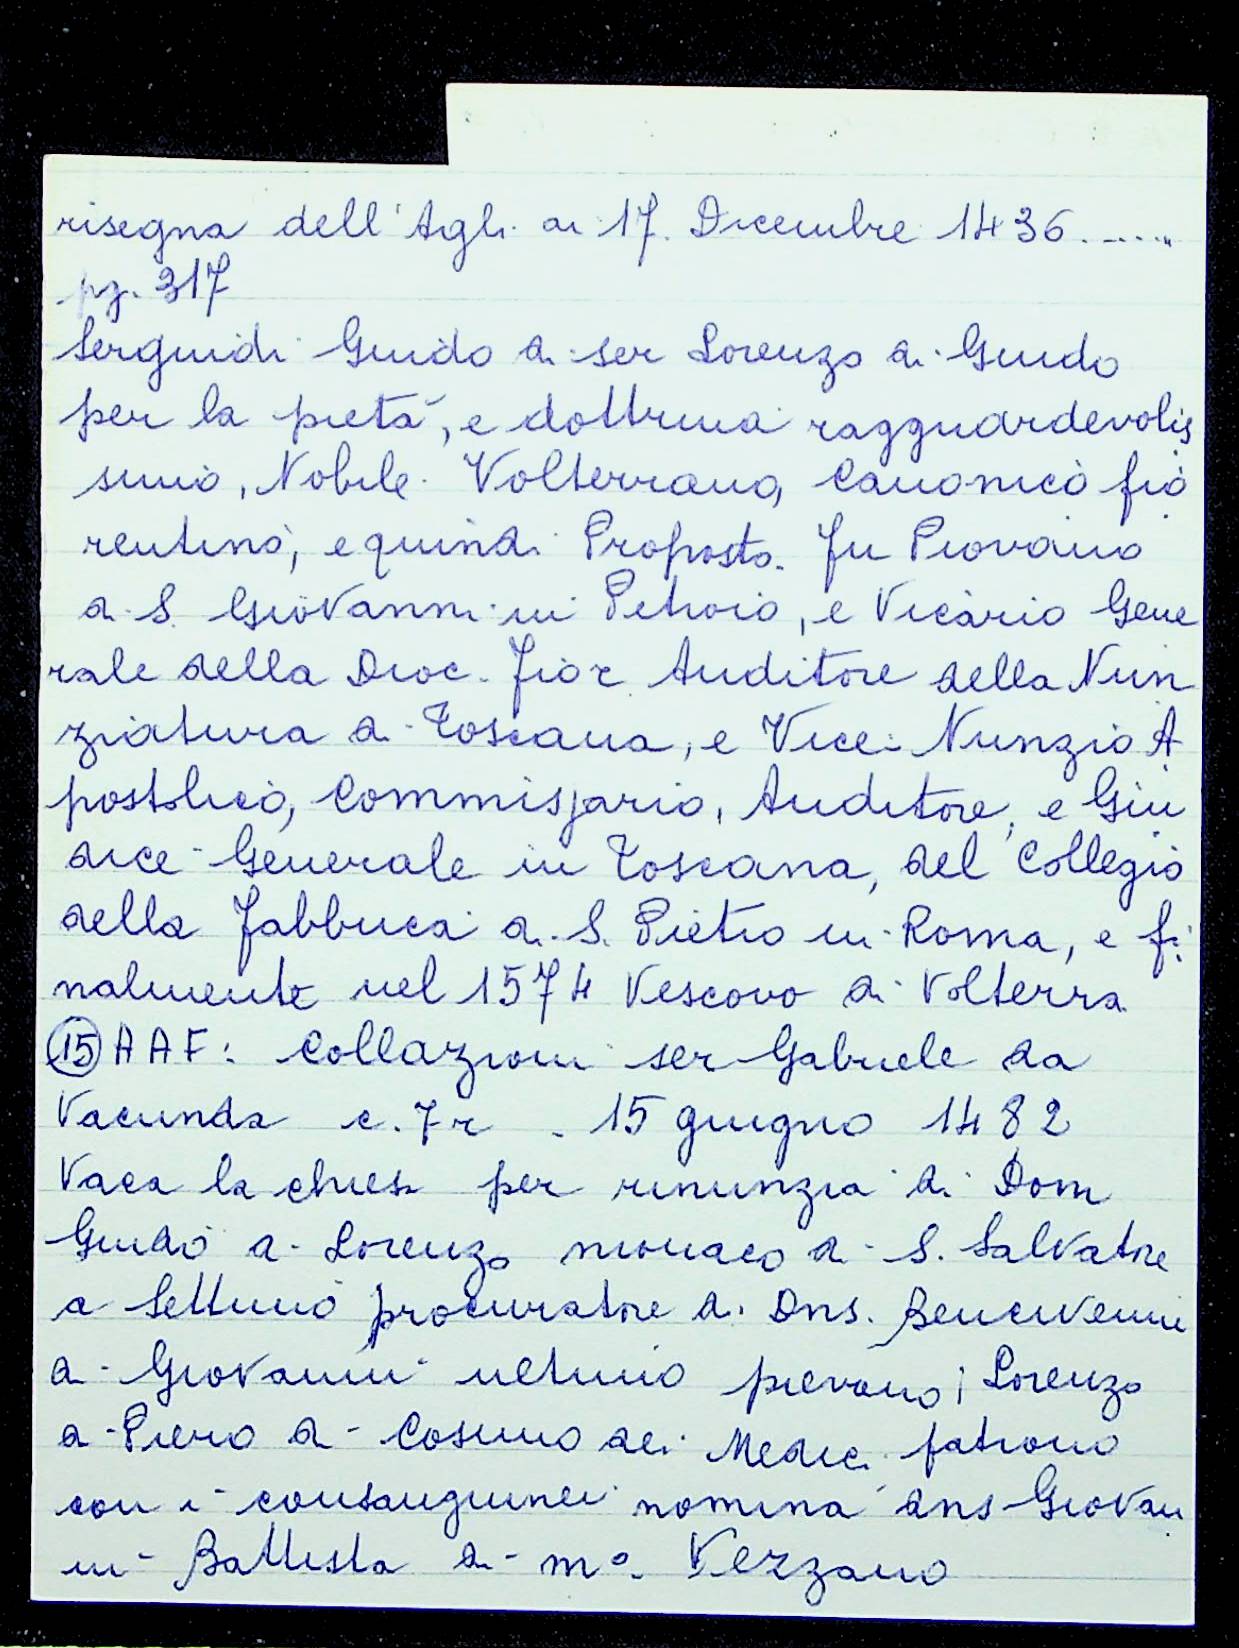 risegna dell'Agli ai 17. Dicembre 1436......
pg. 317
Serguidi Guido di ser Lorenzo di Guido
per la pietà, e dottrina ragguardevolis
simo, Nobile Volterrano, Canonico fio
rentino, e quindi Proposto. Fu Piovano
di S. Giovanni in Petroio, e Vicario Gene
rale della Dioc. Fior. Auditore della Nun
ziatura di Toscana, e Vice-Nunzio A
postolico, Commissario, Auditore, e Giu
dice Generale in Toscana, del Collegio
della Fabbrica di S. Pietro in Roma, e fi
nalmente nel 1574 Vescovo di Volterra
(15) AAF: Collazioni ser Gabriele da
Vacunda c. 7r - 15 giugno 1482
Vaca la chiesa per rinunzia di Dom
Guido di Lorenzo monaco di S. Salvatore
a Settimo procuratore di Dns. Bencivenni
di Giovanni ultimo pievano; Lorenzo
di Piero di Cosimo dei Medici patrono
con i consanguinei nomina dns Giovan
ni Battista di mº. Verzano